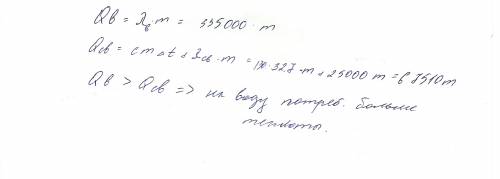 Qв = λв·m = 335000·m
Qсв = cm△t + λсв·m = 130·327·m + 25000 m = 67510m
Qв > Qсв => на воду потреб. больше
теплоты.